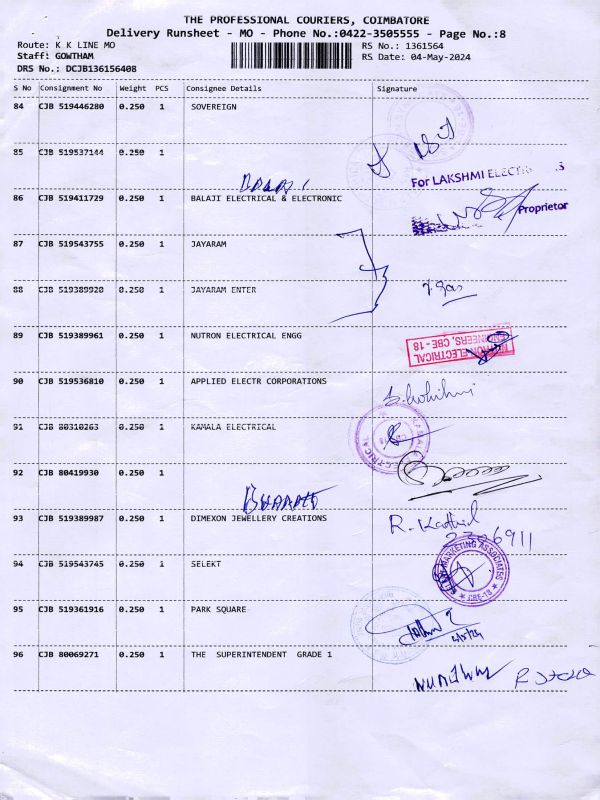 THE PROFESSIONAL COURIERS, COIMBATORE
Delivery Runsheet - MO - Phone No.:0422-3505555 - Page No.:8
Route: K K LINE MO
RS No.: 1361564
Staff: GOWTHAM
RS Date: 04-May-2024
DRS No.: DCJB136156408
S No Consignment No Weight PCS Consignee Details Signature
84 CJB 519446280 0.250 1 SOVEREIGN
85 CJB 519537144 0.250 1
For LAKSHMI ELECTRICALS
86 CJB 519411729 0.250 1 BALAJI ELECTRICAL & ELECTRONIC
Proprietor
87 CJB 519543755 0.250 1 JAYARAM
88 CJB 519389920 0.250 1 JAYARAM ENTER
89 CJB 519389961 0.250 1 NUTRON ELECTRICAL ENGG
NUTRON ELECTRICAL
ENGINEERS, CBE-18
90 CJB 519536810 0.250 1 APPLIED ELECTR CORPORATIONS
91 CJB 80310263 0.250 1 KAMALA ELECTRICAL
92 CJB 80419930 0.250 1
93 CJB 519389987 0.250 1 DIMEXON JEWELLERY CREATIONS
R. Kathid
2206911
94 CJB 519543745 0.250 1 SELEKT
MARKETING ASSOCIATES
CBE-18
95 CJB 519361916 0.250 1 PARK SQUARE
96 CJB 80069271 0.250 1 THE SUPERINTENDENT GRADE 1